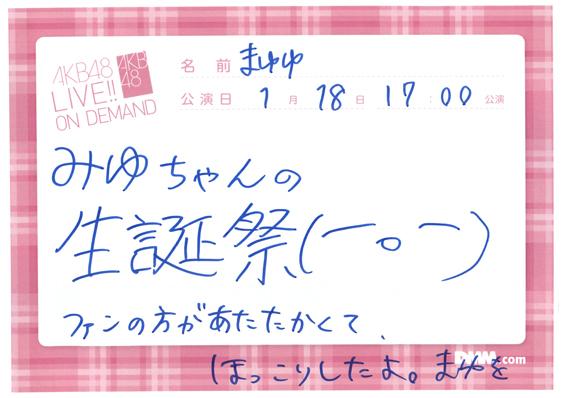 AKB48
LIVE!!
ON DEMAND
AKB
48
名前 まゆゆ
公演日 1月18日 17:00 公演
みゆちゃんの
生誕祭(ー。ー)
ファンの方があたたかくて、
ほっこりしたよ。まゆを
DMM.com